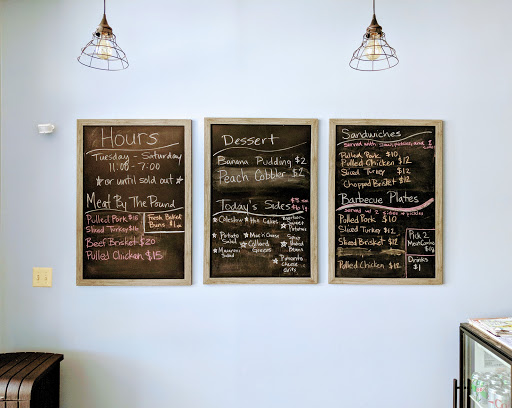 Hours
Tuesday - Saturday
11:00 - 7:00
*or until sold out*
Meat By The Pound
Pulled Pork $15
Sliced Turkey $16
Beef Brisket $20
Pulled Chicken $15
Fresh Baked
Buns $1
Dessert
Banana Pudding $2
Peach Cobbler $2
Today's Sides
Coleslaw
Potato
Salad
Macaroni
Salad
Mac n' Cheese
Collard
Greens
Sweet
Potatoes
Baked
Beans
Pimento
cheese
Grits
Sandwiches
Served with
Pulled Pork $10
Pulled Chicken $12
Sliced Turkey $12
Chopped Brisket $12
Barbecue Plates
Served w/ 2 sides & pickles
Pulled Pork $10
Sliced Turkey $12
Sliced Brisket $12
Pulled Chicken $12
Pick 2
Meat Combo
Drinks
$1